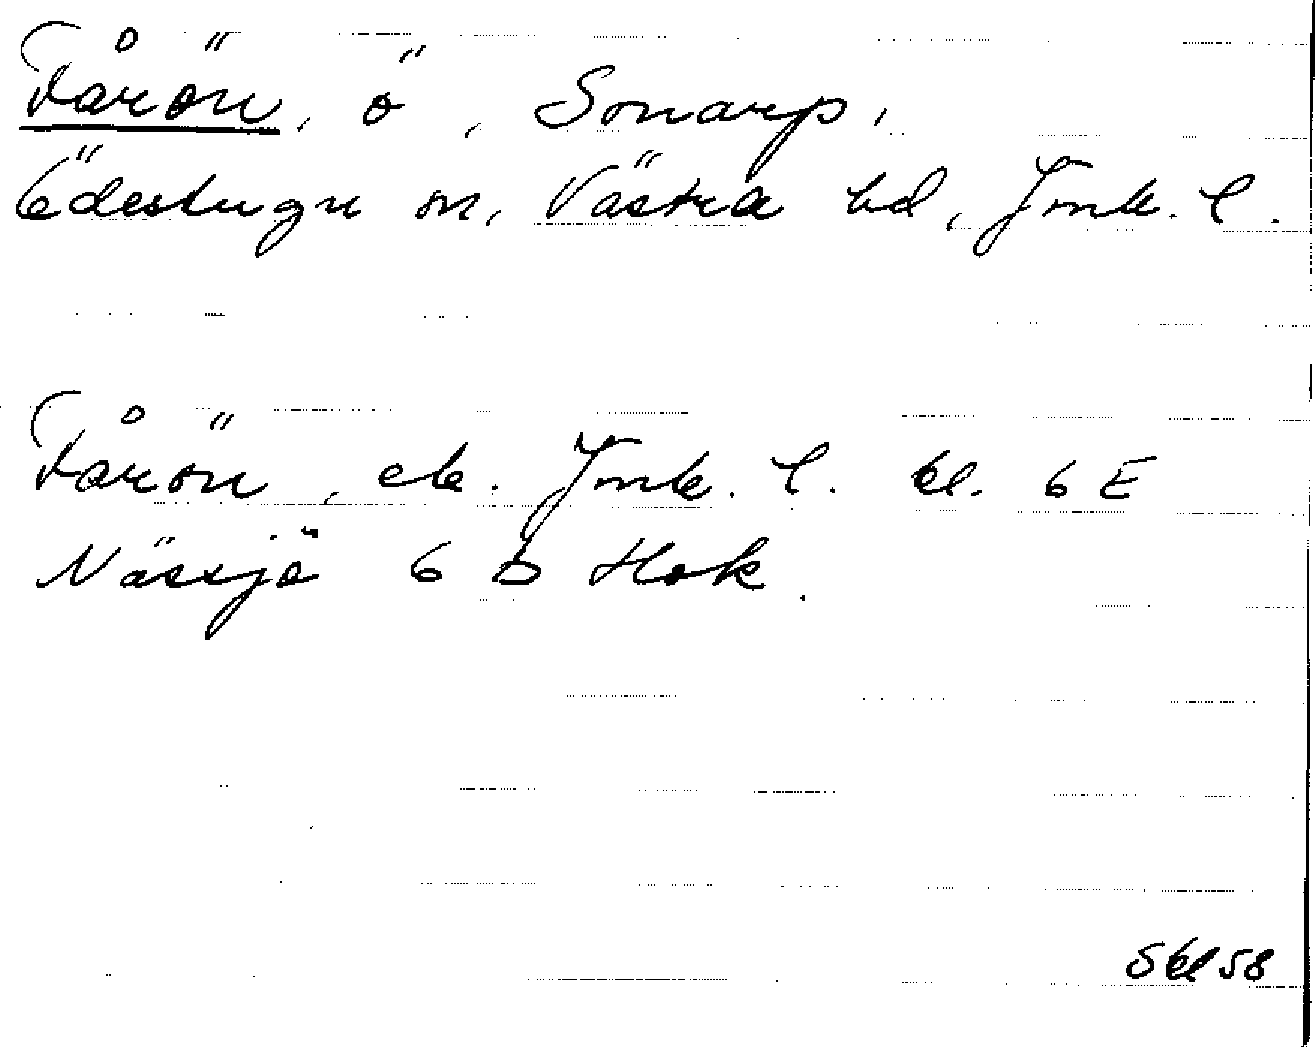 Fårön, ö, Sonarp,
Ödestugu sn, Västra hd, Jmk. l.
Fårön, ek. Jmk. l. bl. 6 E
Nässjö 6 b Hok.
Skl 58